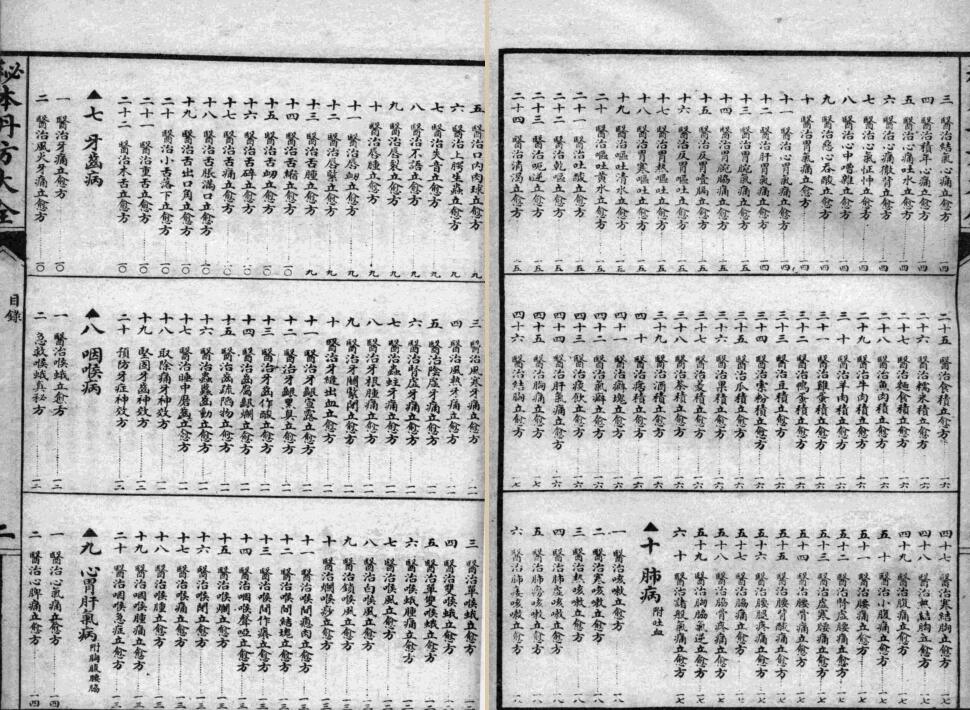 秘本丹方大全
目錄
二
五 醫治口內肉球立愈方 九
六 醫治上腭生蟲立愈方 九
七 醫治失音立愈方 九
八 醫治不立愈方 九
九 醫治唇裂立愈方 九
十 醫治唇腫立愈方 九
十一 醫治唇立愈方 九
十二 醫治唇緊立愈方 九
十三 醫治舌腫立愈方 九
十四 醫治舌縮立愈方 一〇
十五 醫治舌衄立愈方 一〇
十六 醫治舌碎立愈方 一〇
十七 醫治舌痛立愈方 一〇
十八 醫治舌脹滿口立愈方 一〇
十九 醫治舌出口角立愈方 一〇
二十 醫治小舌落下立愈方 一〇
二十一 醫治重舌立愈方 一〇
二十二 醫治木舌立愈方 一〇
▲七 牙齒病
一 醫治牙痛立愈方 一〇
二 醫治風火牙痛立愈方 一〇
三 醫治風寒牙痛立愈方 一一
四 醫治風熱牙痛立愈方 一一
五 醫治陰虛牙痛立愈方 一一
六 醫治腎虛牙痛立愈方 一一
七 醫治蟲蛀牙痛立愈方 一一
八 醫治牙根腫痛立愈方 一一
九 醫治牙關緊閉立愈方 一一
十 醫治牙縫出血立愈方 一一
十一 醫治牙齦宣露立愈方 一一
十二 醫治牙齦黑臭立愈方 一一
十三 醫治牙齒作酸立愈方 一一
十四 醫治齒腐齦爛立愈方 一一
十五 醫治齒疏隔物立愈方 一一
十六 醫治齒動立愈方 一一
十七 醫治睡中磨齒立愈方 一一
十八 取除痛牙神效方 一二
十九 堅固牙齒神效方 一二
二十 預防牙症神效方 一二
▲八 咽喉病
一 醫治喉蛾立愈方 一二
二 急救喉蛾真秘方 一二
三 醫治單喉蛾立愈方 一二
四 醫治雙喉蛾立愈方
五 醫治單雙喉蛾立愈方
六 醫治喉蛾痛立愈方
七 醫治喉風立愈方
八 醫治白喉風立愈方
九 醫治鎖喉風立愈方
十 醫治爛喉痧立愈方
十一 醫治喉間瘜肉立愈方
十二 醫治喉間結塊立愈方
十三 醫治喉間作癢立愈方
十四 醫治咽喉聲啞立愈方
十五 醫治咽喉爛立愈方
十六 醫治咽喉閉立愈方
十七 醫治咽喉痛立愈方
十八 醫治咽喉腫立愈方
十九 醫治咽喉腫痛立愈方 一三
二十 醫治咽喉急症立愈方 一三
▲九 心胃肝氣病 附胸腹腰脇
一 醫治心氣痛立愈方 一四
二 醫治心脾痛立愈方 一四
三 醫治結氣心痛立愈方 一四
四 醫治積年心痛立愈方 一四
五 醫治心痛吐水立愈方 一四
六 醫治心痛徹背立愈方 一四
七 醫治心氣怔忡立愈方 一四
八 醫治心中嘈雜立愈方 一四
九 醫治惡心吞酸立愈方 一四
十 醫治胃氣痛立愈方 一四
十一 醫治心胃氣痛立愈方 一四
十二 醫治肝胃氣痛立愈方 一四
十三 醫治胃脘氣痛立愈方 一五
十四 醫治胃脘腸痛立愈方 一五
十五 醫治反胃噎膈立愈方 一五
十六 醫治反胃嘔吐立愈方 一五
十七 醫治胃熱嘔吐立愈方 一五
十八 醫治胃寒嘔吐立愈方 一五
十九 醫治嘔吐清水立愈方 一五
二十 醫治嘔吐黃水立愈方 一五
二十一 醫治嘔吐酸立愈方 一五
二十二 醫治乾嘔立愈方 一五
二十三 醫治呃逆立愈方 一五
二十四 醫治消渴立愈方 一五
二十五 醫治食積立愈方 一六
二十六 醫治糯米積立愈方 一六
二十七 醫治麵食積立愈方 一六
二十八 醫治魚肉積立愈方 一六
二十九 醫治牛肉積立愈方 一六
三十 醫治羊肉積立愈方 一六
三十一 醫治雞蛋積立愈方 一六
三十二 醫治鴨蛋積立愈方 一六
三十三 醫治豆粉積立愈方 一六
三十四 醫治索粉積立愈方 一六
三十五 醫治瓜積立愈方 一六
三十六 醫治果積立愈方 一六
三十七 醫治菱積立愈方 一六
三十八 醫治茶積立愈方 一六
三十九 醫治酒積立愈方 一六
四十 醫治病積立愈方 一六
四十一 醫治癖塊立愈方 一六
四十二 醫治氣癖立愈方 一六
四十三 醫治痰飲立愈方 一六
四十四 醫治肝氣痛立愈方 一六
四十五 醫治胸痛立愈方 一七
四十六 醫治結胸立愈方 一七
四十七 醫治寒結胸立愈方 一七
四十八 醫治熱結胸立愈方 一七
四十九 醫治腹痛立愈方 一七
五十 醫治小腹痛立愈方 一七
五十一 醫治腰痛立愈方 一七
五十二 醫治腎虛腰痛立愈方 一七
五十三 醫治虛寒腰痛立愈方 一七
五十四 醫治腰脊痛立愈方 一七
五十五 醫治腰背酸痛立愈方 一七
五十六 醫治腰腿疼痛立愈方 一七
五十七 醫治脇痛立愈方 一七
五十八 醫治脇脊疼痛立愈方 一七
五十九 醫治胸脇氣逆立愈方 一七
六十 醫治諸般氣痛立愈方 一七
▲十 肺病 附吐血
一 醫治咳嗽立愈方 一八
二 醫治寒咳嗽立愈方 一八
三 醫治熱咳嗽立愈方 一八
四 醫治肺虛咳嗽立愈方 一八
五 醫治肺傷咳嗽立愈方 一八
六 醫治肺痿咳嗽立愈方 一八